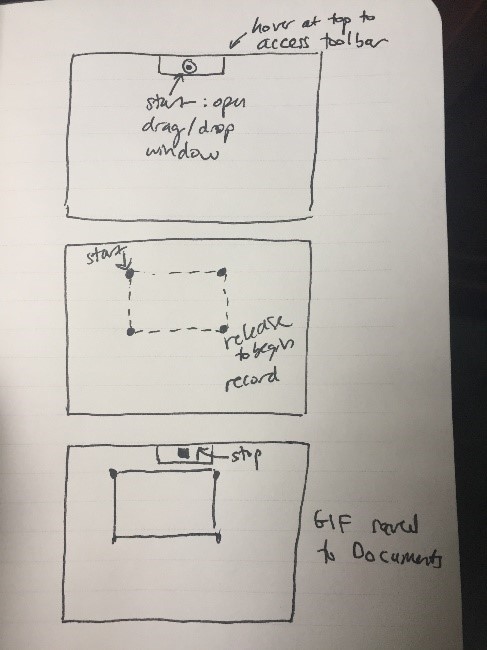 hover at top to
access toolbar
start : open
drag/drop
window
start
release
to begin
record
stop
GIF saved
to Documents